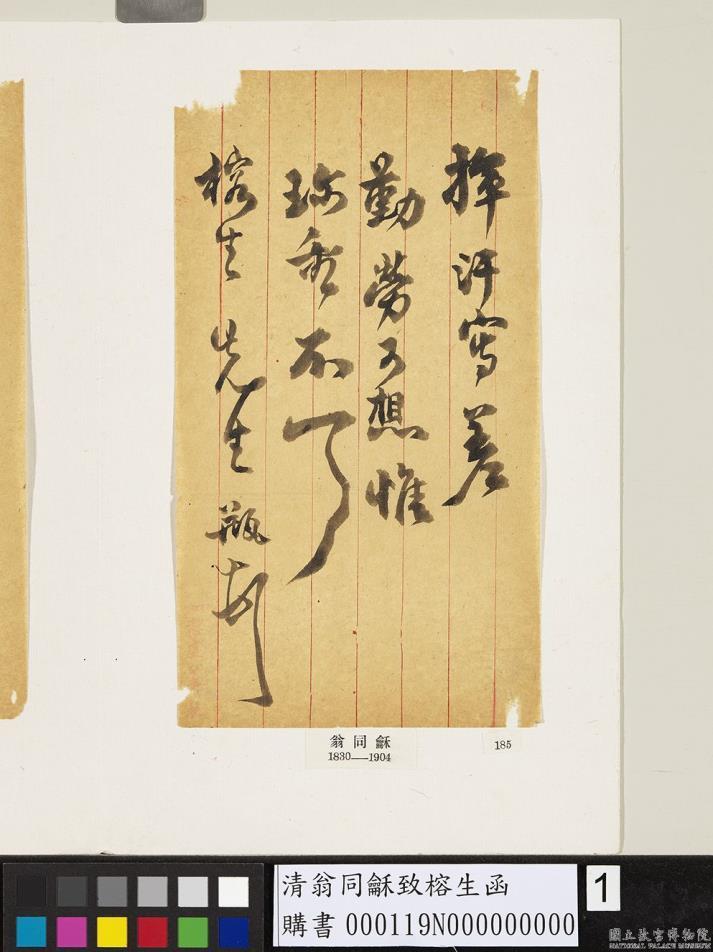 揮汗寫差
勤勞可想惟
珍重不了
榕生先生 瓶
翁同龢
1830—1904
185
清翁同龢致榕生函
購書 000119N000000000
1
國立故宮博物院
NATIONAL PALACE MUSEUM